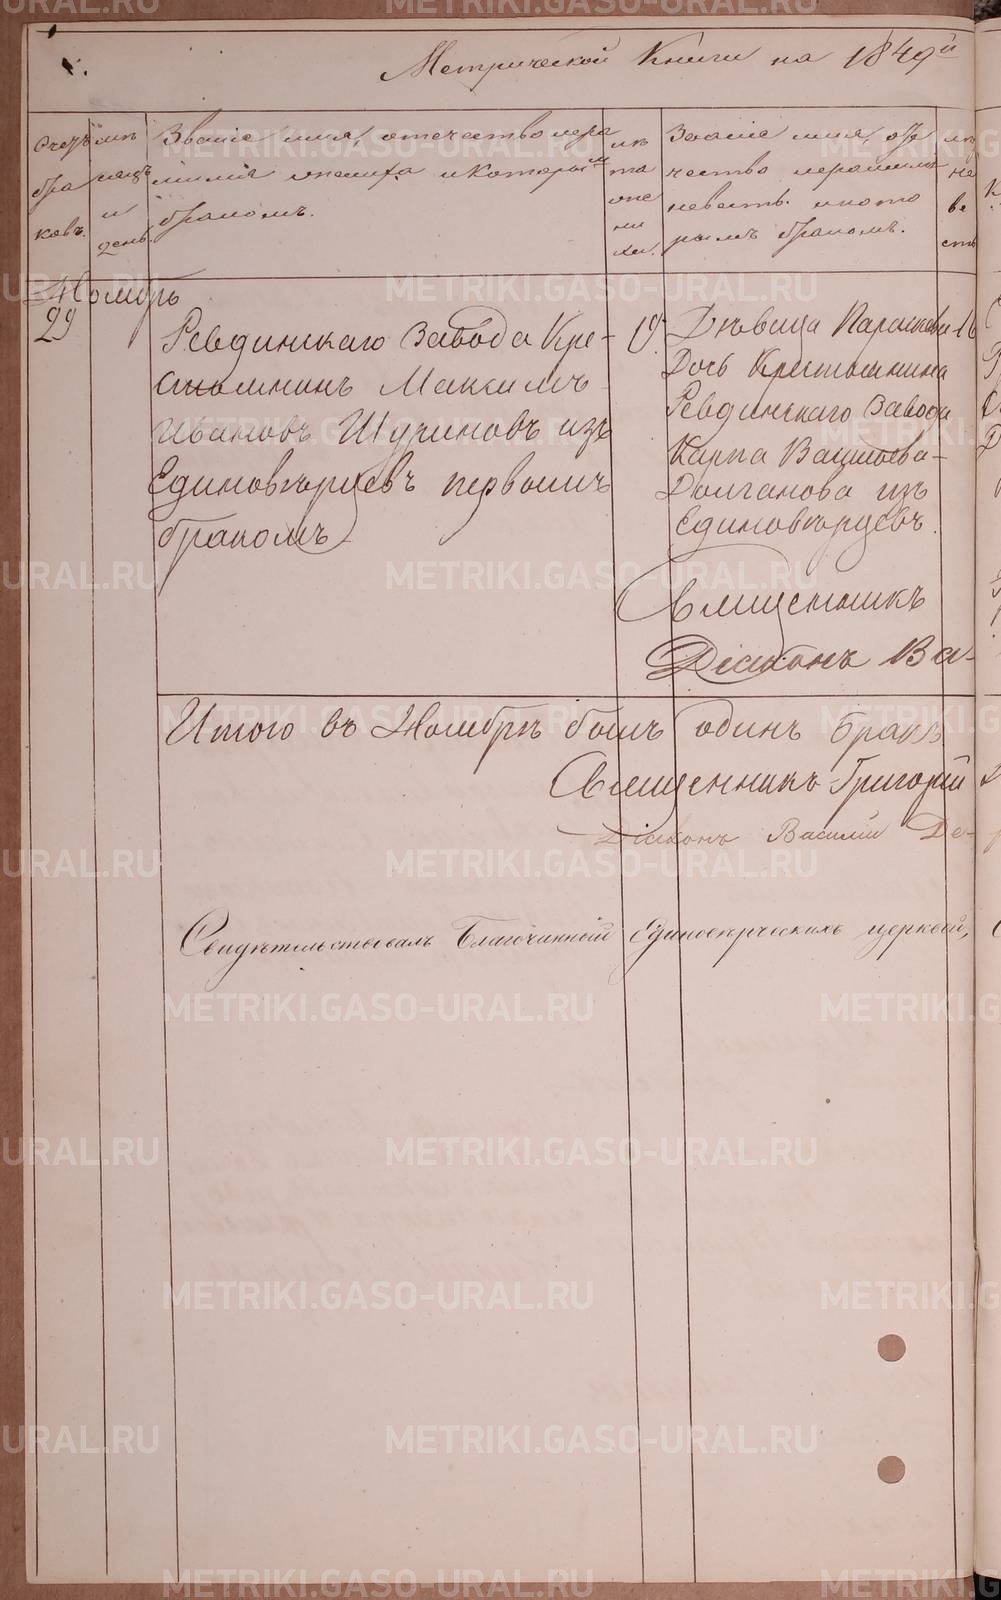 Метрической Книги на 1849й
Счетъ бра ковъ.
мѣсяцъ и день.
Званіе имя, отечество и фамилія жениха и которымъ бракомъ.
лѣта жениха.
Званіе имя, отечество и фамилія невесты. и которымъ бракомъ.
лѣта невесты
Ноябрь
29
Ревдинскаго Завода Кре-
стьянинъ Максимъ
Ивановъ Щуриновъ изъ
Единовѣрцевъ первымъ
бракомъ
19
Дѣвица Параскева
Дочь Крестьянина
Ревдинскаго Завода
Карпа Васильева
Долганова изъ
Единовѣрцевъ.
16
Священникъ
Діаконъ Ва-
Итого въ Ноябрѣ былъ одинъ бракъ
Священникъ Григорій
Діаконъ Василій Де-
Свидѣтельствовалъ Благочинный Единовѣрческихъ церквей,
METRIKI.GASO-URAL.RU